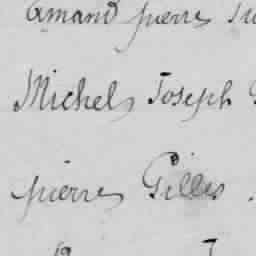 Amand pierre
Michel Joseph
pierre Gilles